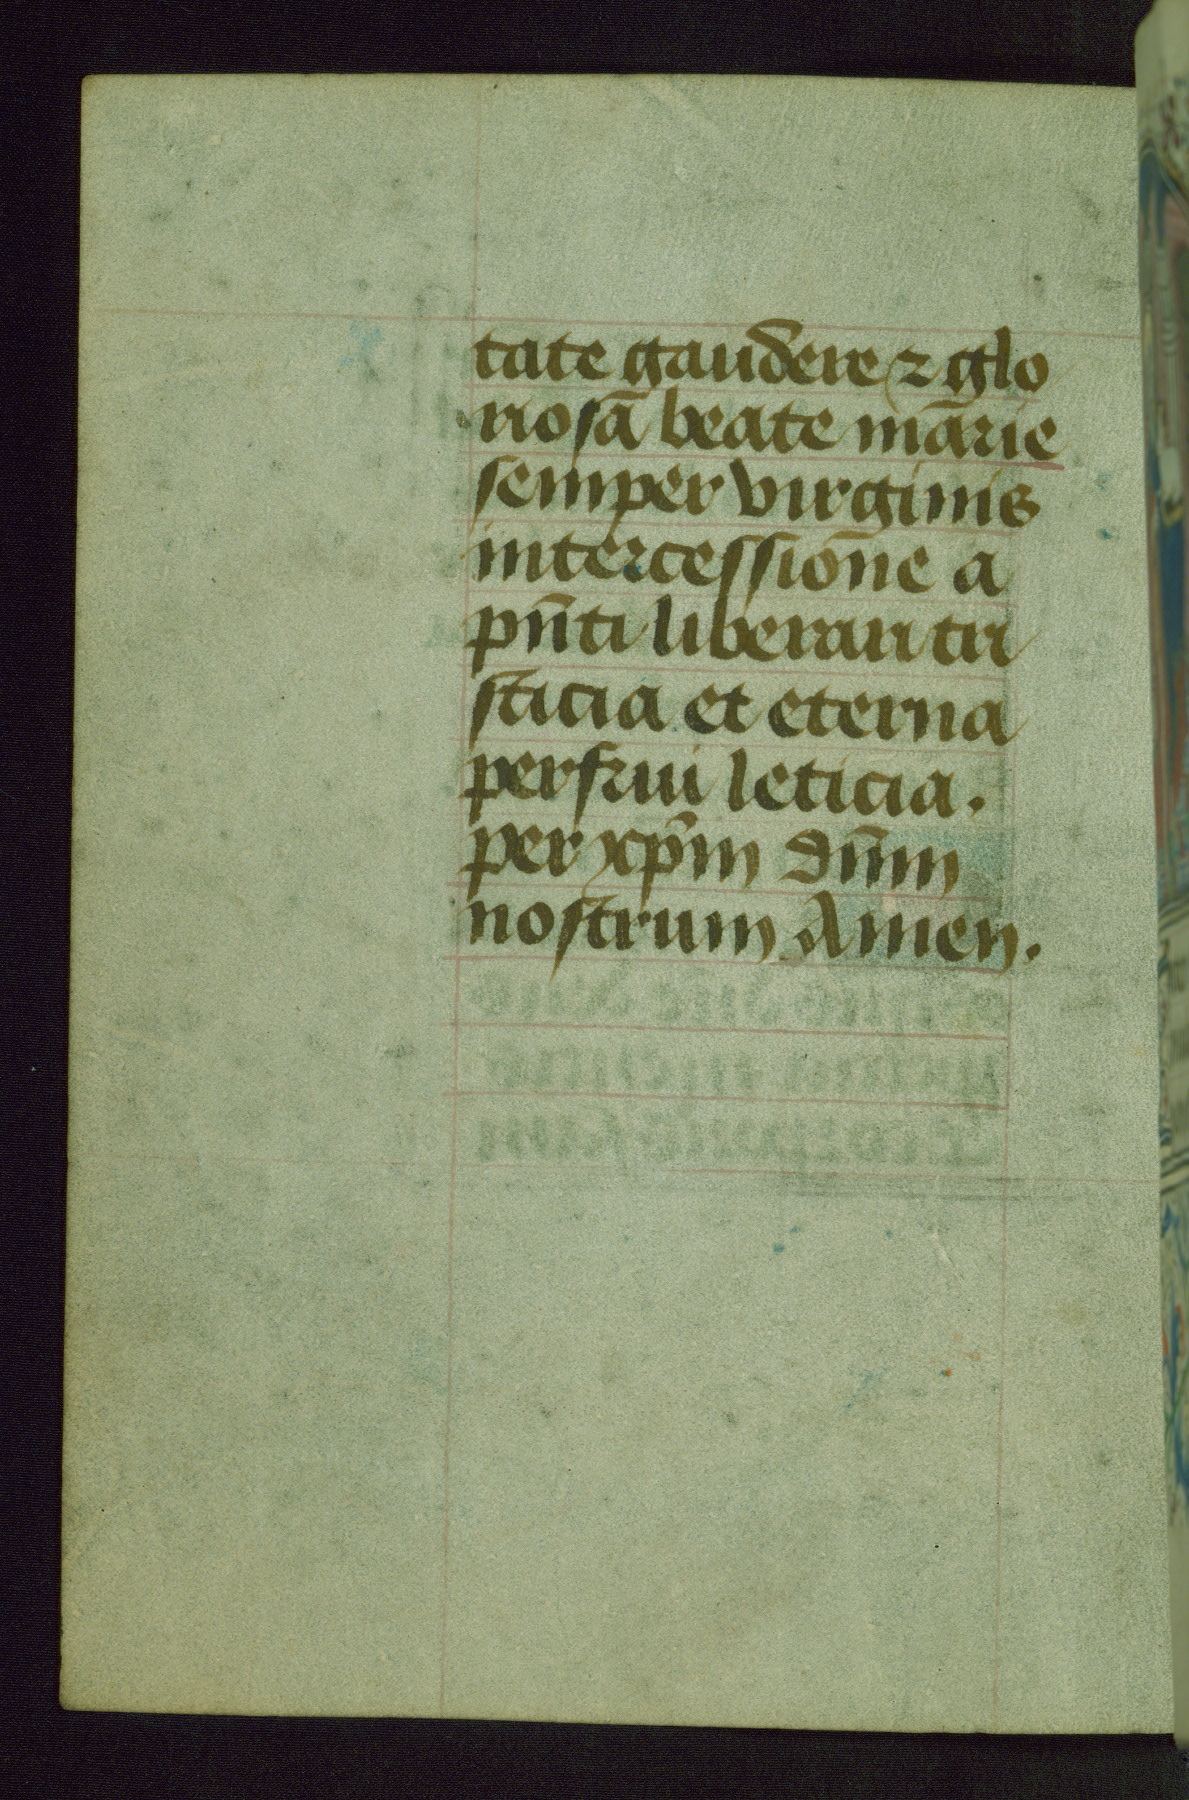 tate gaudere ⁊ glo
riosā beate marie
semper virginis
intercessiōne a
pn̄ti liberari tri
sticia et eterna
perfrui leticia.
per xp̄m dn̄m
nostrum Amen.